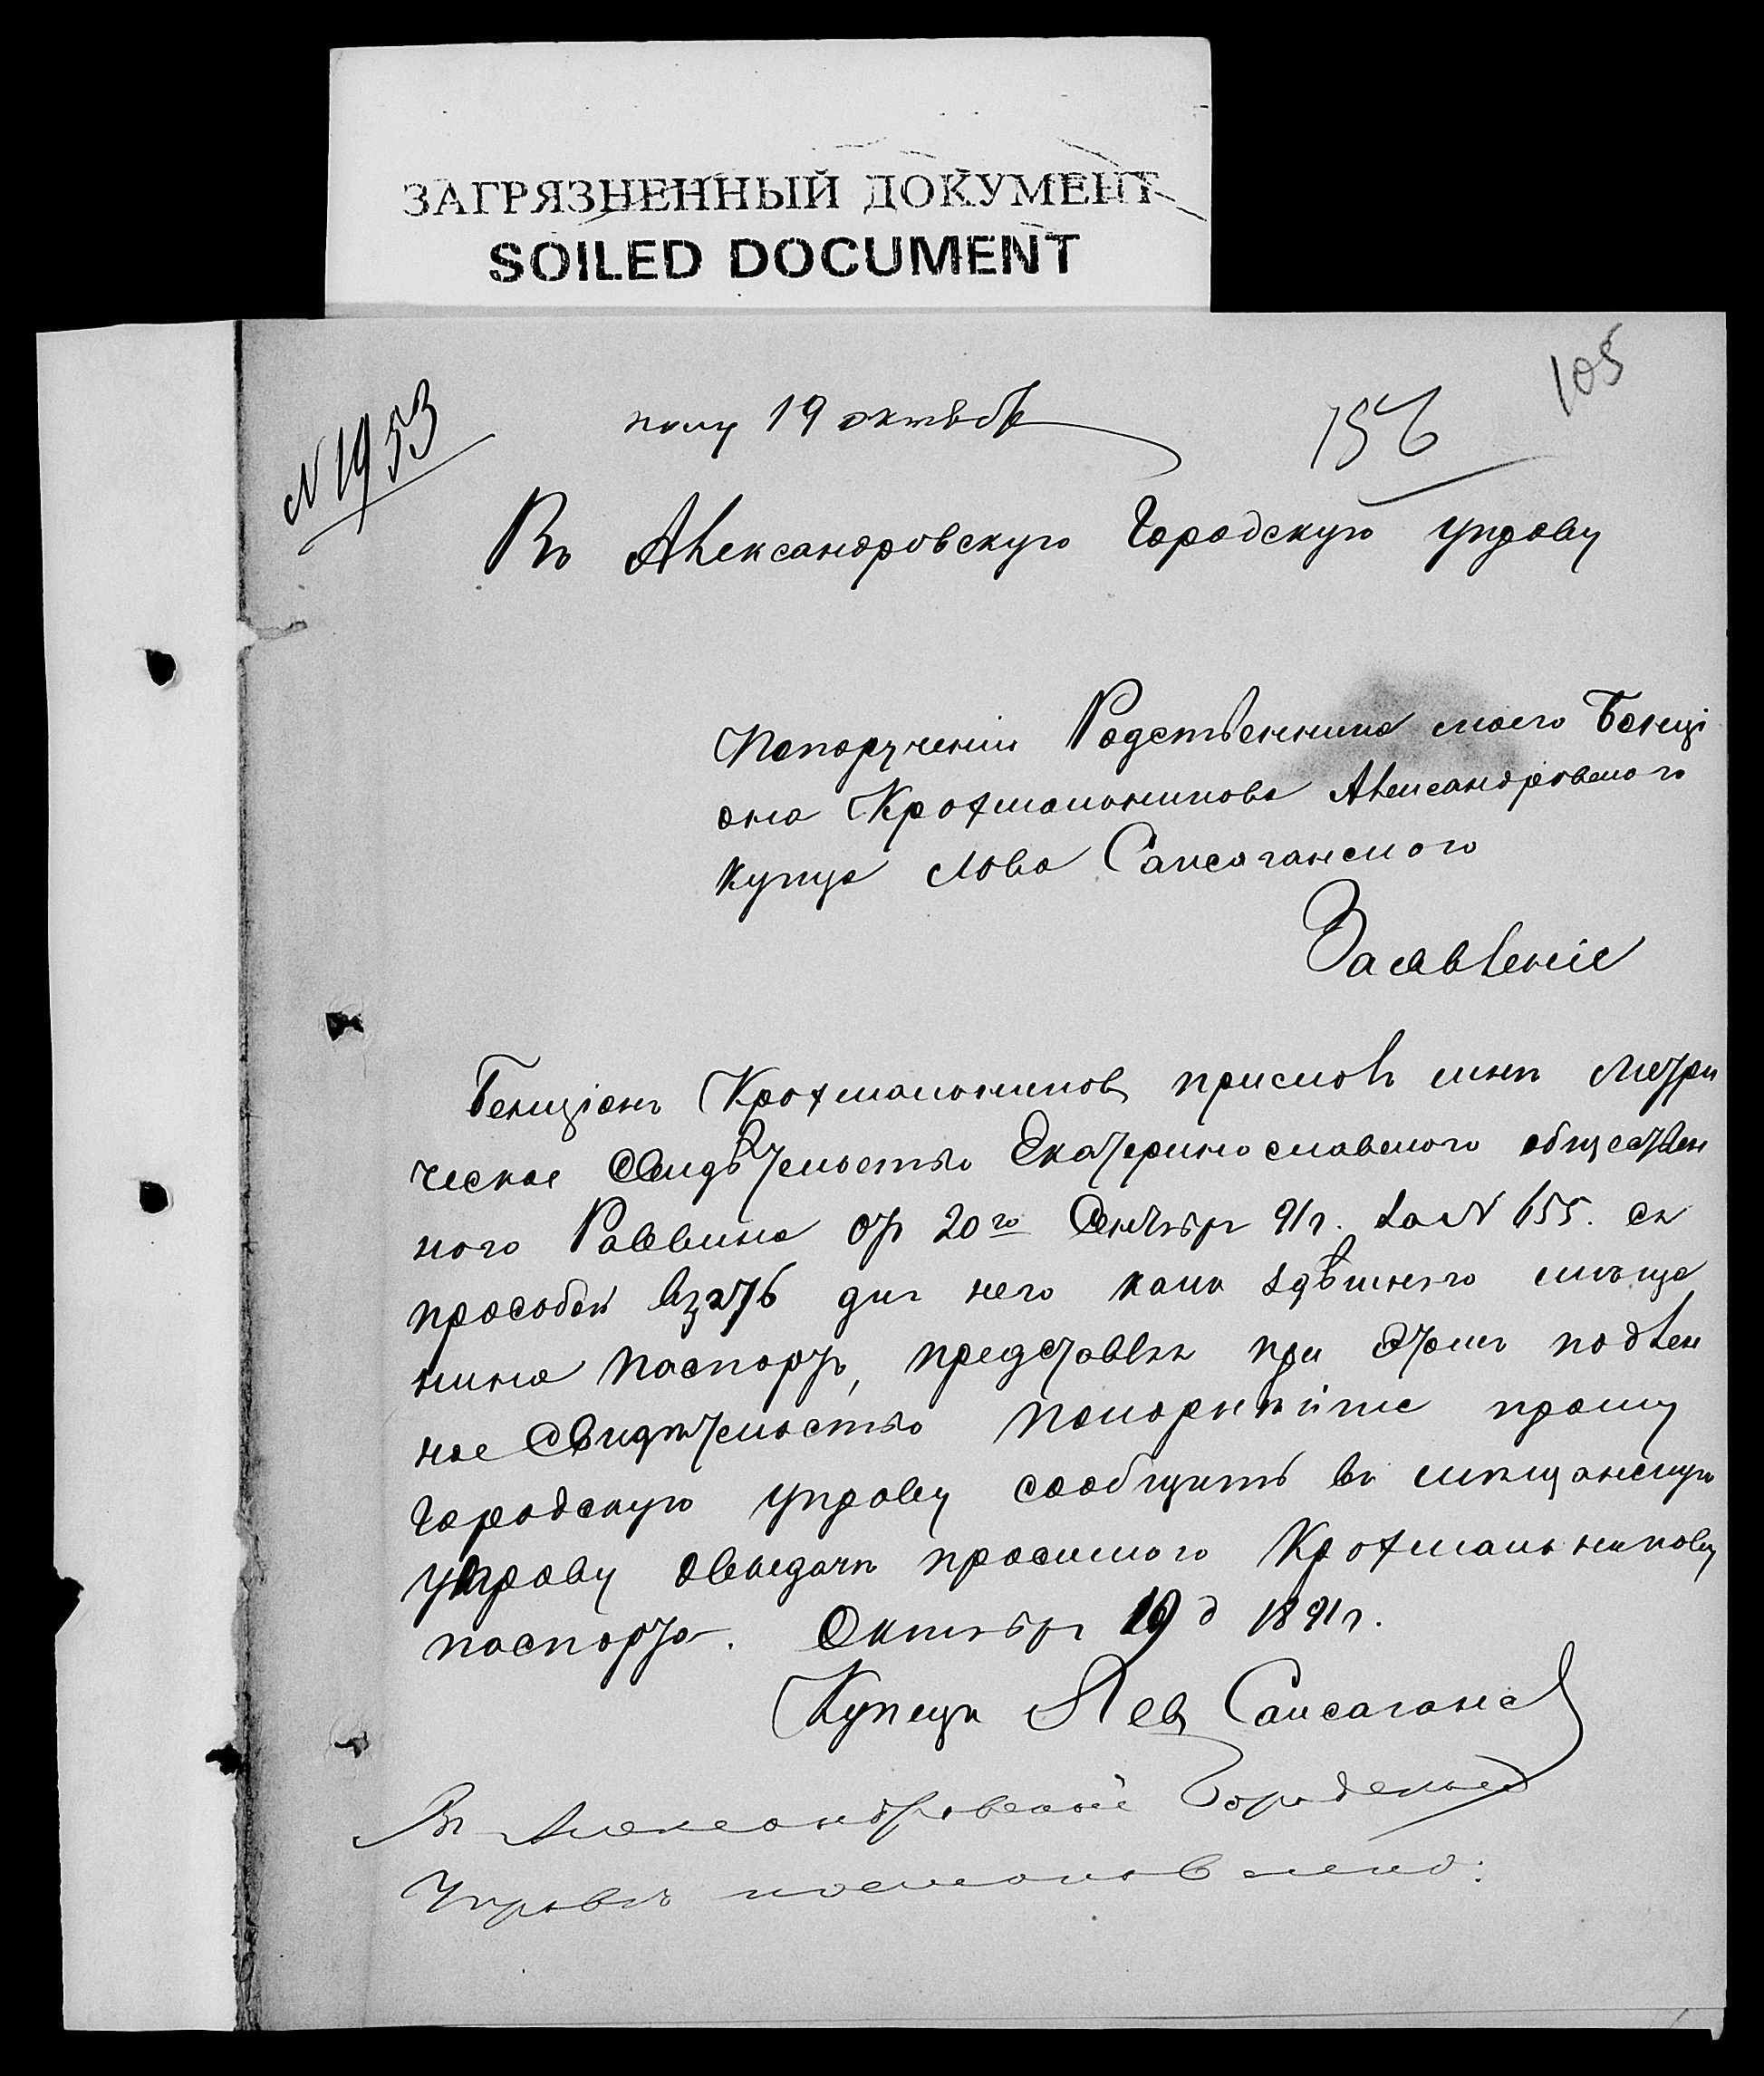 ЗАГРЯЗНЕННЫЙ ДОКУМЕНТ
SOILED DOCUMENT
105
N 1953
полу 19 октяб
156
Въ Александровскую Городскую управу
Попорученiи Родственника моего Бенцi
она Крохмальникова Александровского
купца Льва Саксаганского
Заявленiе
Бенцiонъ Крохмальников прислолъ мнѣ Метри
ческое Свидѣтельство Екатеринославского обществен
ного Раввина от 20го Сентябр 91г. за N 655. съ
прозбой взять для него какъ здѣшнего мѣща
нина паспортъ, представля при этомъ подлен
ное Свидѣтельство покорнѣйше прошу
Городскую управу сообщить въ мѣщанскую
управу овыдачи просимого Крохмальникову
паспорта. Октября 19 д 1891г.
Купецъ Лев Саксаганс
Въ Александровской Городской
Управѣ постановлено: